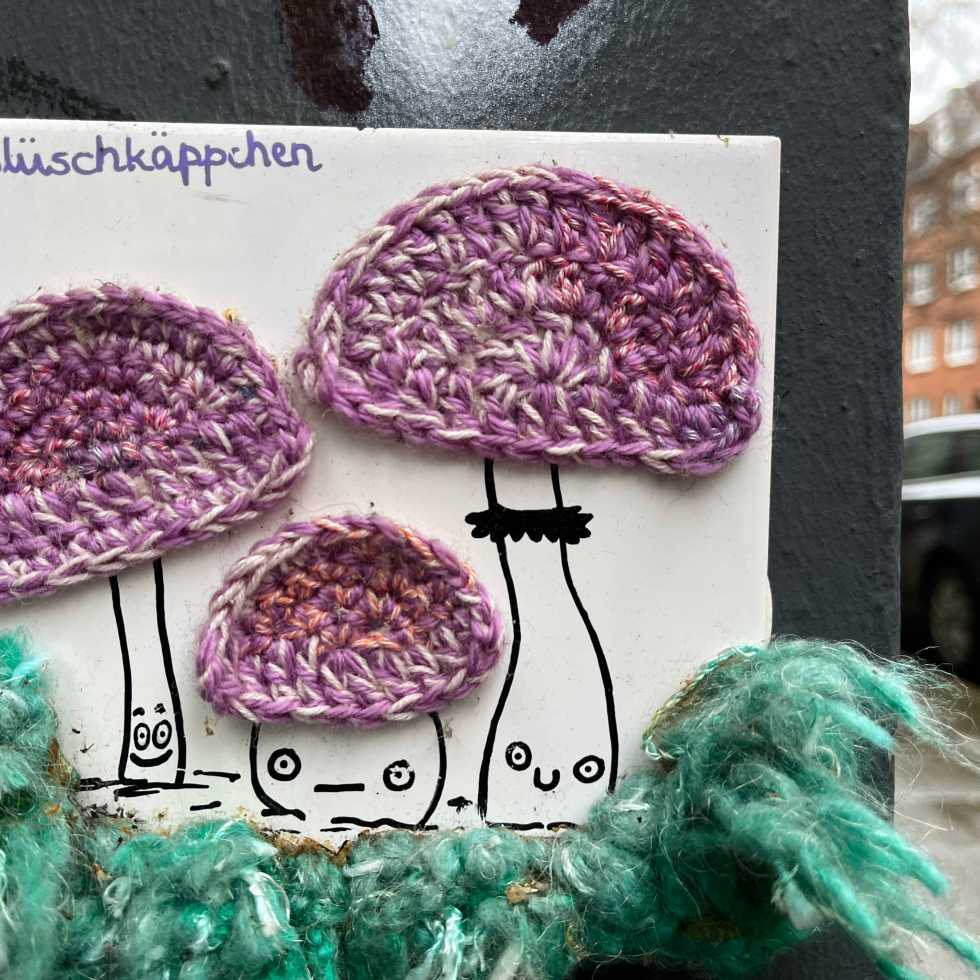 lüschkäppchen